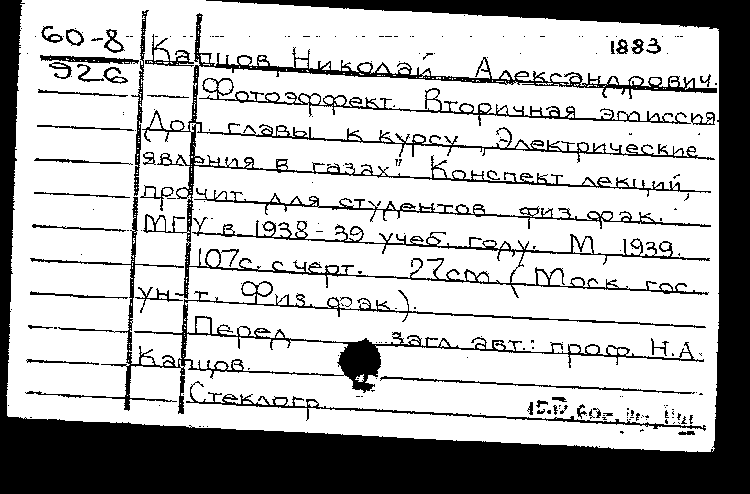 60-8
926
1883
Капцов, Николай Александрович.
Фотоэффект. Вторичная эмиссия.
Доп. главы к курсу „Электрические
явления в газах". Конспект лекций,
прочит. для студентов физ. фак.
МГУ в 1938-39 учеб. году. М., 1939.
107с. с черт. 27cm. (Моск. гос.
ун-т. Физ. фак.).
Перед загл. авт.: проф. Н.А.
Капцов.
Стеклогр.
15.IV.60г.